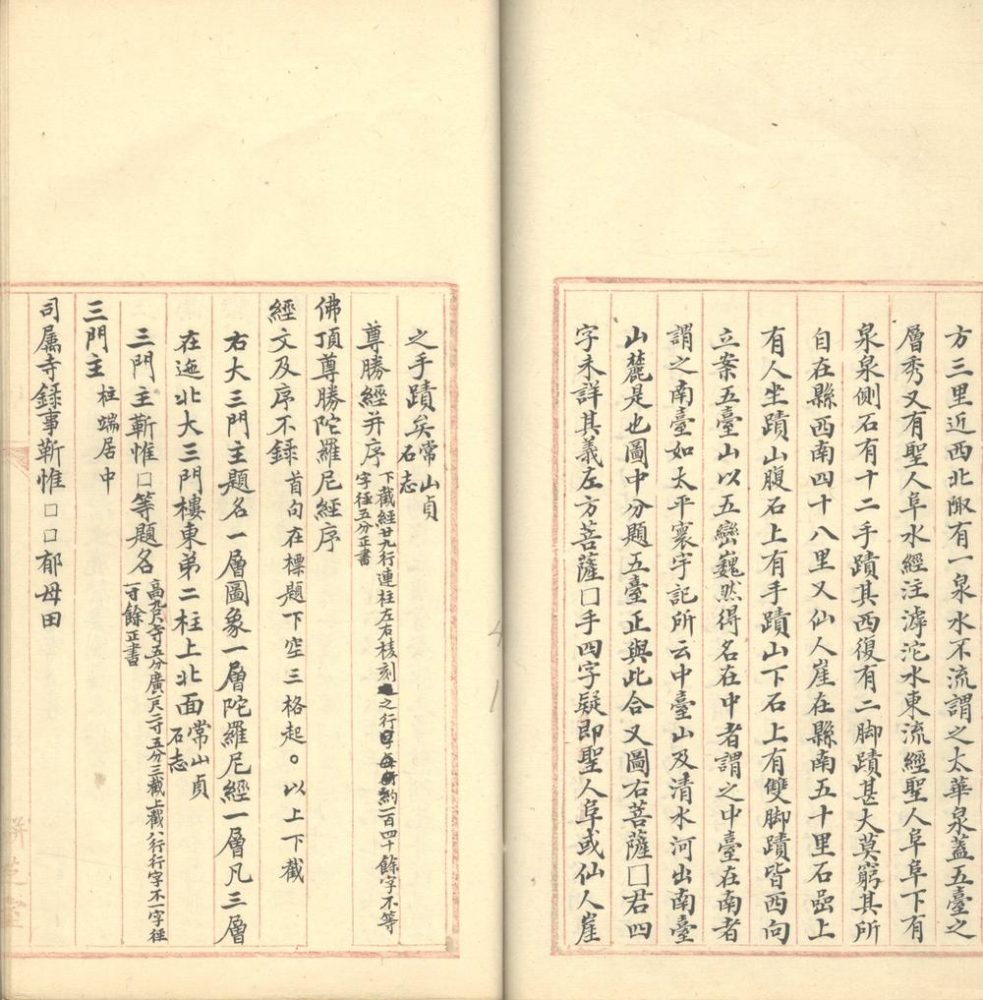 方三里近西北陬有一泉水不流謂之太華泉蓋五臺之
層秀又有聖人阜水經注滹沱水東流經聖人阜阜下有
泉泉側石有十二手蹟其西復有二脚蹟甚大莫窮其所
自在縣西南四十八里又仙人崖在縣南五十里石嵒上
有人坐蹟山腹石上有手蹟山下石上有雙脚蹟皆西向
立案五臺山以五巒巍然得名在中者謂之中臺在南者
謂之南臺如太平寰宇記所云中臺山及清水河出南臺
山麓是也圖中分題五臺正與此合又圖右菩薩囗君四
字未詳其義左方菩薩囗手四字疑即聖人阜或仙人崖
之手蹟矣常山貞
石志
尊勝經并序下截經廿九行連柱左右棱刻之行字每行約一百四十餘字不等
字徑五分正書
佛頂尊勝陀羅尼經序
經文及序不錄首向在標題下空三格起。以上下截
右大三門主題名一層圖象一層陀羅尼經一層凡三層
在迤北大三門樓東弟二柱上北面常山貞
石志
三門主靳惟囗等題名高九尺五分廣一尺二寸五分三截上截八行行字不一字徑
一寸餘正書
三門主柱端居中
司屬寺錄事靳惟囗囗郁母田